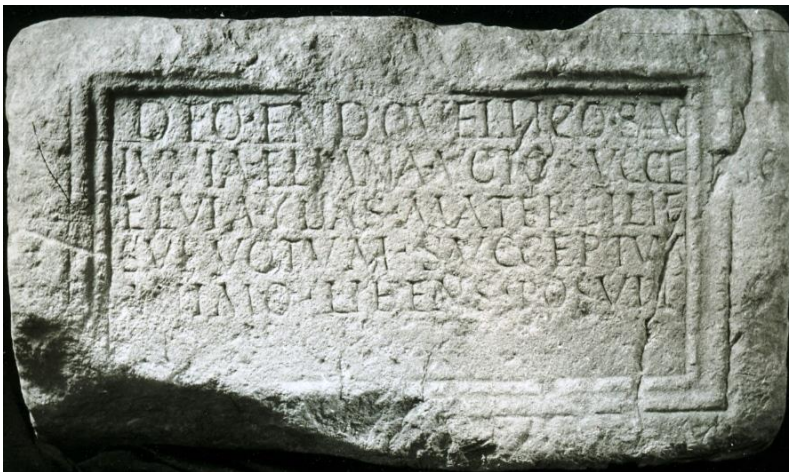 DEO·ENDOVELLICO·SAC
IVNIA·ELIANA·VOTO·SVCCEPTO
ELVIA·YBAS·MATER·FILIE
SVE VOTVM·SVCCEPTVM
ANIMO·LIBENS·POSVIT